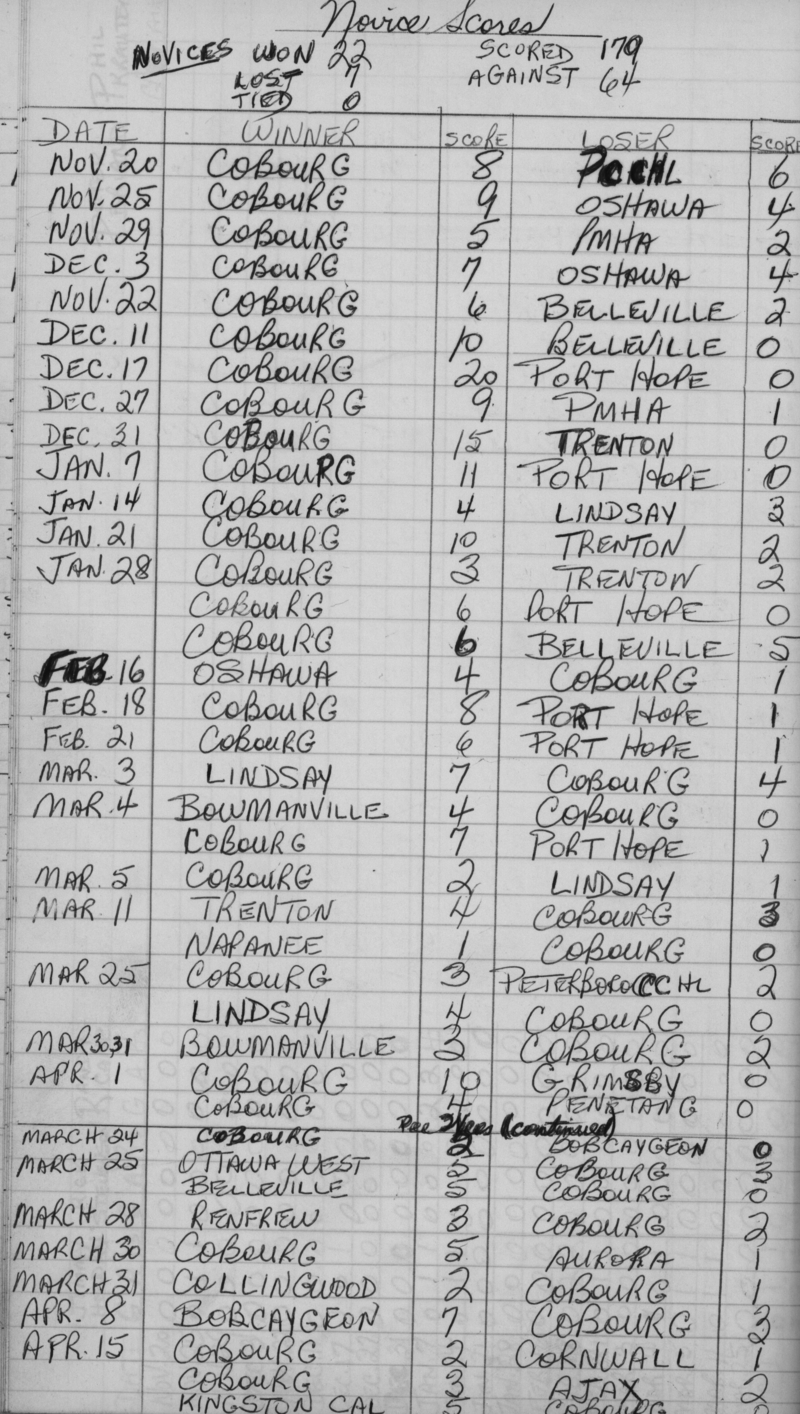 Novice Scores
NOVICES WON 22 SCORED 179
LOST 7 AGAINST 64
TIED 0
DATE WINNER SCORE LOSER SCORE
NOV. 20 COBOURG 8 PCCHL 6
NOV. 25 COBOURG 9 OSHAWA 4
NOV. 29 COBOURG 5 PMHA 2
DEC. 3 COBOURG 7 OSHAWA 4
NOV. 22 COBOURG 6 BELLEVILLE 2
DEC. 11 COBOURG 10 BELLEVILLE 0
DEC. 17 COBOURG 20 PORT HOPE 0
DEC. 27 COBOURG 9 PMHA 1
DEC. 31 COBOURG 15 TRENTON 0
JAN. 7 COBOURG 11 PORT HOPE 0
JAN. 14 COBOURG 4 LINDSAY 3
JAN. 21 COBOURG 10 TRENTON 2
JAN. 28 COBOURG 3 TRENTON 2
COBOURG 6 PORT HOPE 0
COBOURG 6 BELLEVILLE 5
FEB. 16 OSHAWA 4 COBOURG 1
FEB. 18 COBOURG 8 PORT HOPE 1
FEB. 21 COBOURG 6 PORT HOPE 1
MAR. 3 LINDSAY 7 COBOURG 4
MAR. 4 BOWMANVILLE 4 COBOURG 0
COBOURG 7 PORT HOPE 1
MAR. 5 COBOURG 2 LINDSAY 1
MAR. 11 TRENTON 4 COBOURG 3
NAPANEE 1 COBOURG 0
MAR 25 COBOURG 3 PETERBORO CCHL 2
LINDSAY 4 COBOURG 0
MAR 30,31 BOWMANVILLE 3 COBOURG 2
APR. 1 COBOURG 10 GRIMSBY 0
COBOURG 4 PENETANG 0
Pee Wees (continued)
MARCH 24 COBOURG 2 BOBCAYGEON 0
MARCH 25 OTTAWA WEST 5 COBOURG 3
BELLEVILLE 5 COBOURG 0
MARCH 28 RENFREW 3 COBOURG 2
MARCH 30 COBOURG 5 AURORA 1
MARCH 31 COLLINGWOOD 2 COBOURG 1
APR. 8 BOBCAYGEON 7 COBOURG 3
APR. 15 COBOURG 2 CORNWALL 1
COBOURG 3 AJAX 2
KINGSTON CAL 5 COBOURG 0